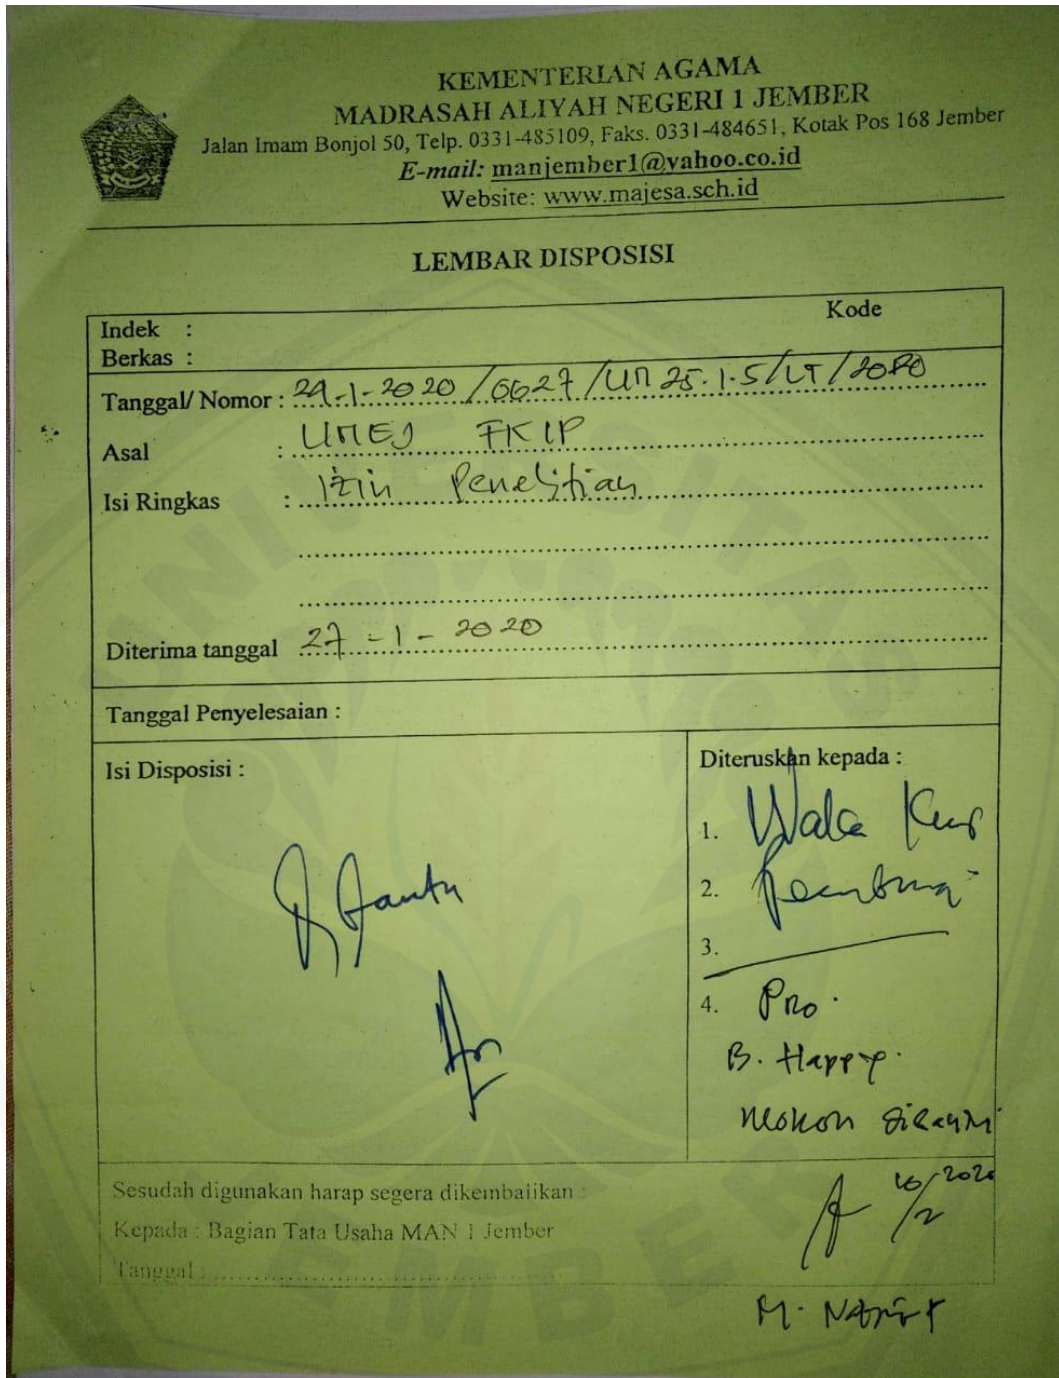 KEMENTERIAN AGAMA
MADRASAH ALIYAH NEGERI 1 JEMBER
Jalan Imam Bonjol 50, Telp. 0331-485109, Faks. 0331-484651, Kotak Pos 168 Jember
E-mail: manjember1@yahoo.co.id
Website: www.majesa.sch.id
LEMBAR DISPOSISI
Kode
Indek :
Berkas :
Tanggal/ Nomor :
Asal : UNEJ FKIP
Isi Ringkas : Izin Penelitian
Diterima tanggal 27 - 1 - 2020
Tanggal Penyelesaian :
Isi Disposisi :
Diteruskan kepada :
1. Waka Kur
2.
3.
4. Pro.
B. Happy.
Mohon
Sesudah digunakan harap segera dikembalikan :
Kepada : Bagian Tata Usaha MAN 1 Jember
Tanggal :